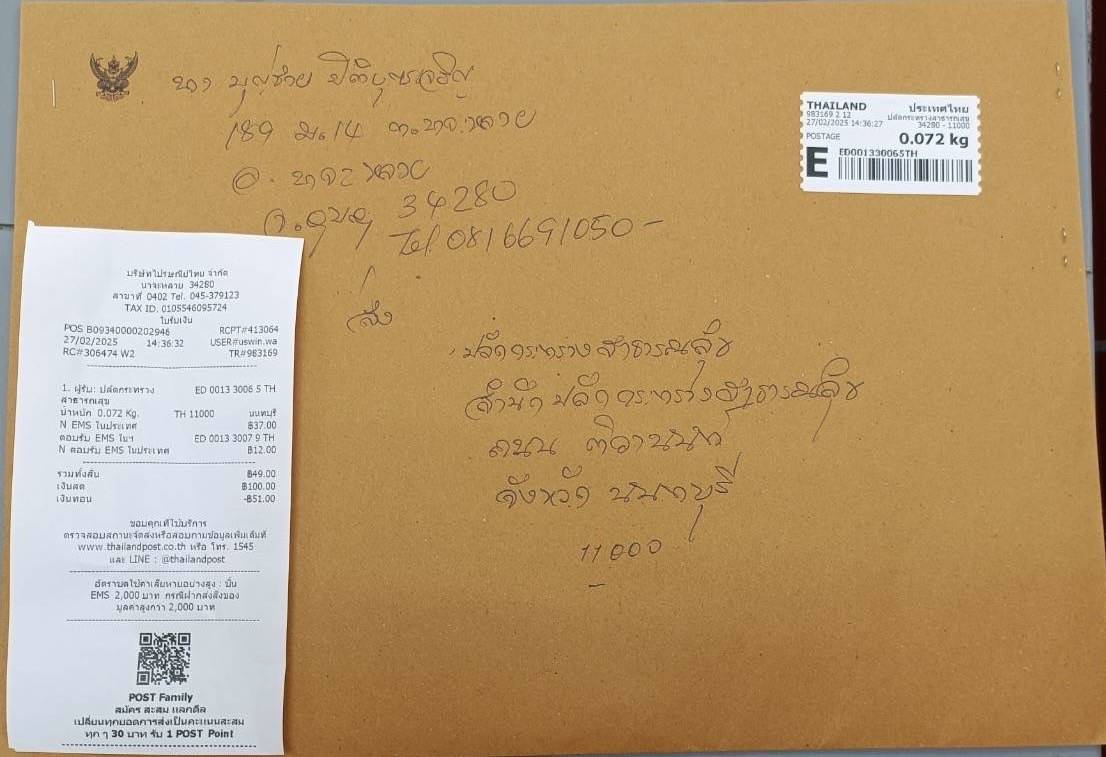 นาง บุญช่วย ปิติบุญเจริญ
189 ม.14 ต.นาจะหลวย
อ. นาจะหลวย
จ.อุบลฯ 34280
Tel 0816691050-
ส่ง
ปลัดกระทรวงสาธารณสุข
สำนักปลัดกระทรวงสาธารณสุข
ถนน ติวานนท์
จังหวัด นนทบุรี
11000
THAILAND ประเทศไทย
983169 2 12 ปลัดกระทรวงสาธารณสุข
27/02/2025 14:36:27 34280 - 11000
POSTAGE 0.072 kg
E ED001330065TH
บริษัทไปรษณีย์ไทย จำกัด
นาจะหลวย 34280
สาขาที่ 0402 Tel. 045-379123
TAX ID. 0105546095724
ใบรับเงิน
POS B09340000202946 RCPT#413064
27/02/2025 14:36:32 USER#uswin.wa
RC#306474 W2 TR#983169
1. ผู้รับ: ปลัดกระทรวง ED 0013 3006 5 TH
สาธารณสุข
น้ำหนัก 0.072 Kg. TH 11000 นนทบุรี
N EMS ในประเทศ ฿37.00
ตอบรับ EMS ในฯ ED 0013 3007 9 TH
N ตอบรับ EMS ในประเทศ ฿12.00
รวมทั้งสิ้น ฿49.00
เงินสด ฿100.00
เงินทอน -฿51.00
ขอบคุณที่ใช้บริการ
ตรวจสอบสถานะจัดส่งหรือสอบถามข้อมูลเพิ่มเติมที่
www.thailandpost.co.th หรือ โทร. 1545
และ LINE : @thailandpost
อัตราชดใช้ค่าเสียหายอย่างสูง : ชิ้น
EMS 2,000 บาท กรณีฝากส่งสิ่งของ
มูลค่าสูงกว่า 2,000 บาท
POST Family
สมัคร สะสม แลกดีล
เปลี่ยนทุกยอดการส่งเป็นคะแนนสะสม
ทุก ๆ 30 บาท รับ 1 POST Point